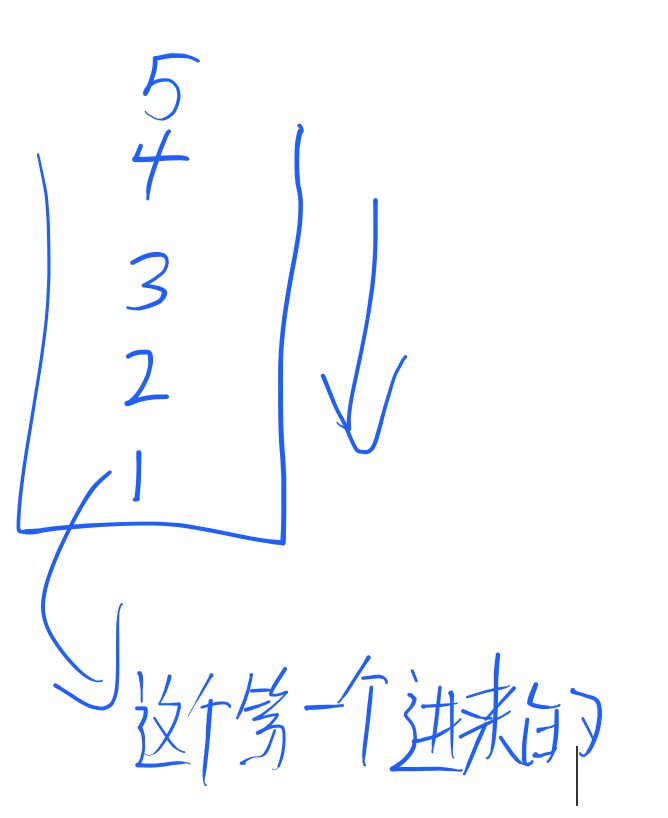 5
4
3
2
1
这个第一个进来的